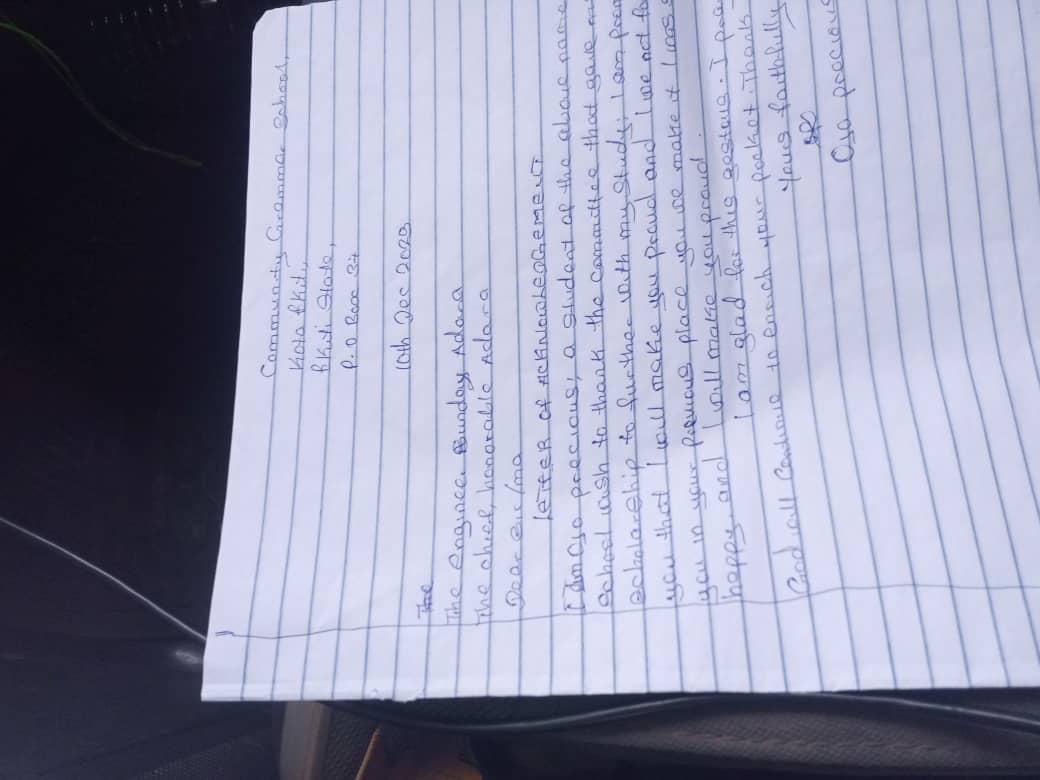 Community Grammar School,
Kota Ekiti,
Ekiti State,
P.O Box 37
10th Dec 2023
The
The engineer Sunday Adara
The chief, honorable Adara
Dear sir/ma
LETTER OF ACKNOWLEDGEMENT
I am Ojo precious, a student of the above name
school wish to thank the committee that gave
scholarship to further with my study, I am
you that I will make you proud and I we not
you in your previous place you we make it
happy and I will make you proud.
I am glad for this gesture. I
God will Continue to enrich your pocket. Thank
Yours faithfully
Ojo precious